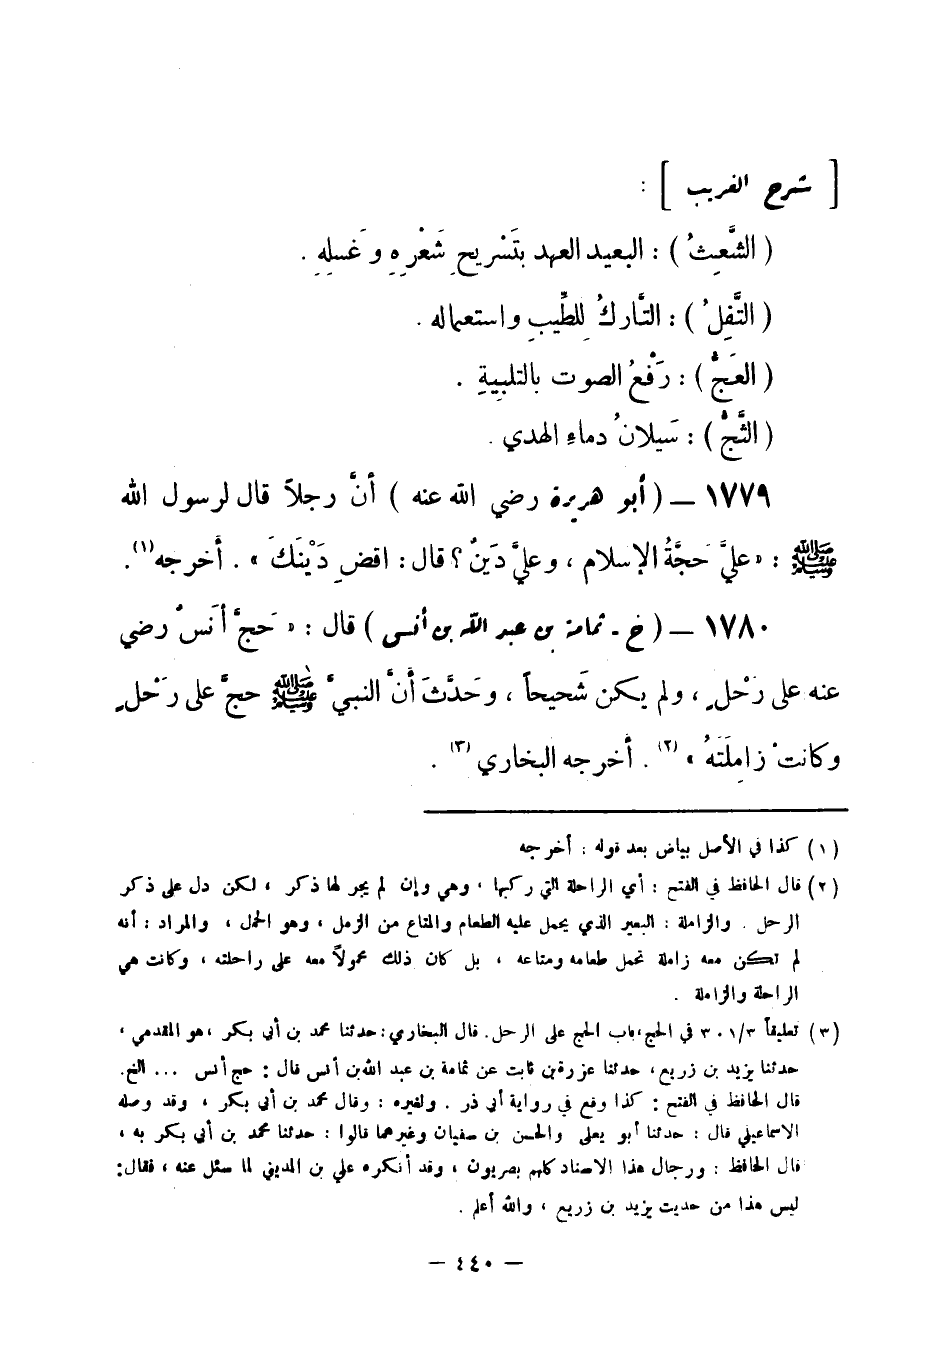 [ شرح الغريب ] :
( الشَّعِثُ ) : البعيد العهد بتَسْريحِ شَعْرِهِ وغَسلِهِ .
( التَّفِلُ ) : التَّاركُ لِلطِّيبِ واستعماله .
( العَجُّ ) : رَفْعُ الصوت بالتلبيةِ .
( الثَّجُّ ) : سَيلانُ دماءِ الهدي .
١٧٧٩ – ( أبو هريرة رضي الله عنه ) أنَّ رجلاً قال لرسول الله
ﷺ : « عليَّ حَجَّةُ الإسلام ، وعليَّ دَينٌ ؟ قال : اقضِ دَيْنَكَ » . أخرجه (١) .
١٧٨٠ – ( خ - ثمامة بن عبد الله بن أنس ) قال : « حَجَّ أنَسٌ رضي
عنه على رَحْلٍ ، ولم يكن شَحيحاً ، وحَدَّثَ أنَّ النبيَّ ﷺ حجَّ على رَحْلٍ
وكانتْ زامِلَتَهُ » (٢) . أخرجه البخاري (٣) .
(١) كذا في الأصل بياض بعد قوله : أخرجه
(٢) قال الحافظ في الفتح : أي الراحلة التي ركبها ، وهي وإن لم يجر لها ذكر ، لكن دل على ذكر
الرحل . والزاملة : البعير الذي يحمل عليه الطعام والمتاع من الزمل ، وهو الحمل ، والمراد : أنه
لم تكن معه زاملة تحمل طعامه ومتاعه ، بل كان ذلك محمولاً معه على راحلته ، وكانت هي
الراحلة والزاملة .
(٣) تعليقاً ٣٠١/٣ في الحج ، باب الحج على الرحل . قال البخاري : حدثنا محمد بن أبي بكر ، هو المقدمي ،
حدثنا يزيد بن زريع ، حدثنا عزرة بن ثابت عن ثمامة بن عبد الله بن أنس قال : حج أنس ... الخ.
قال الحافظ في الفتح : كذا وقع في رواية أبي ذر . ولغيره : وقال محمد بن أبي بكر ، وقد وصله
الاسماعيلي قال : حدثنا أبو يعلى والحسن بن سفيان وغيرهما قالوا : حدثنا محمد بن أبي بكر به ،
قال الحافظ : ورجال هذا الاسناد كلهم بصريون ، وقد أنكره علي بن المديني لما سئل عنه ، فقال :
ليس هذا من حديث يزيد بن زريع ، والله أعلم .
– ٤٤٠ –